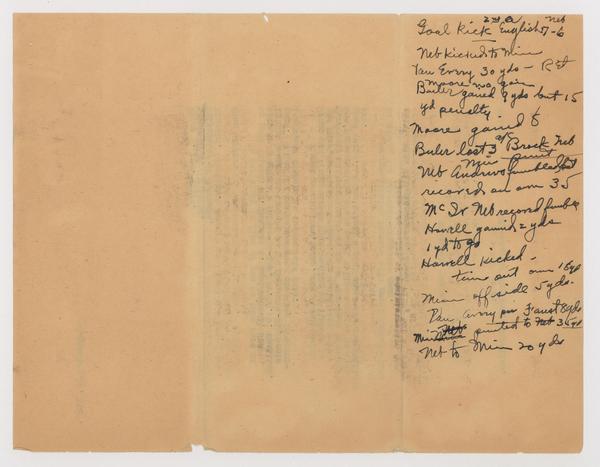 2nd Q Neb
Goal Kick English 7-6
Neb Kicked to Minn
Van Every 30 yds - Ret
Moore no gain
Buhler gained 9 yds but 15
yd penalty
Moore gained 8
Buhler lost 3 Brock Neb
Min punt
Neb Andrews fumbled but
recovered on own 35
Neb recovered fumble
Howell gained 2 yds
1 yd to go
Howell Kicked -
time out own 18 yd
Minn off side 5 yds.
Van Every Faust 8 yds
Minn punted to Neb 35 yd
Neb to Minn 20 yds